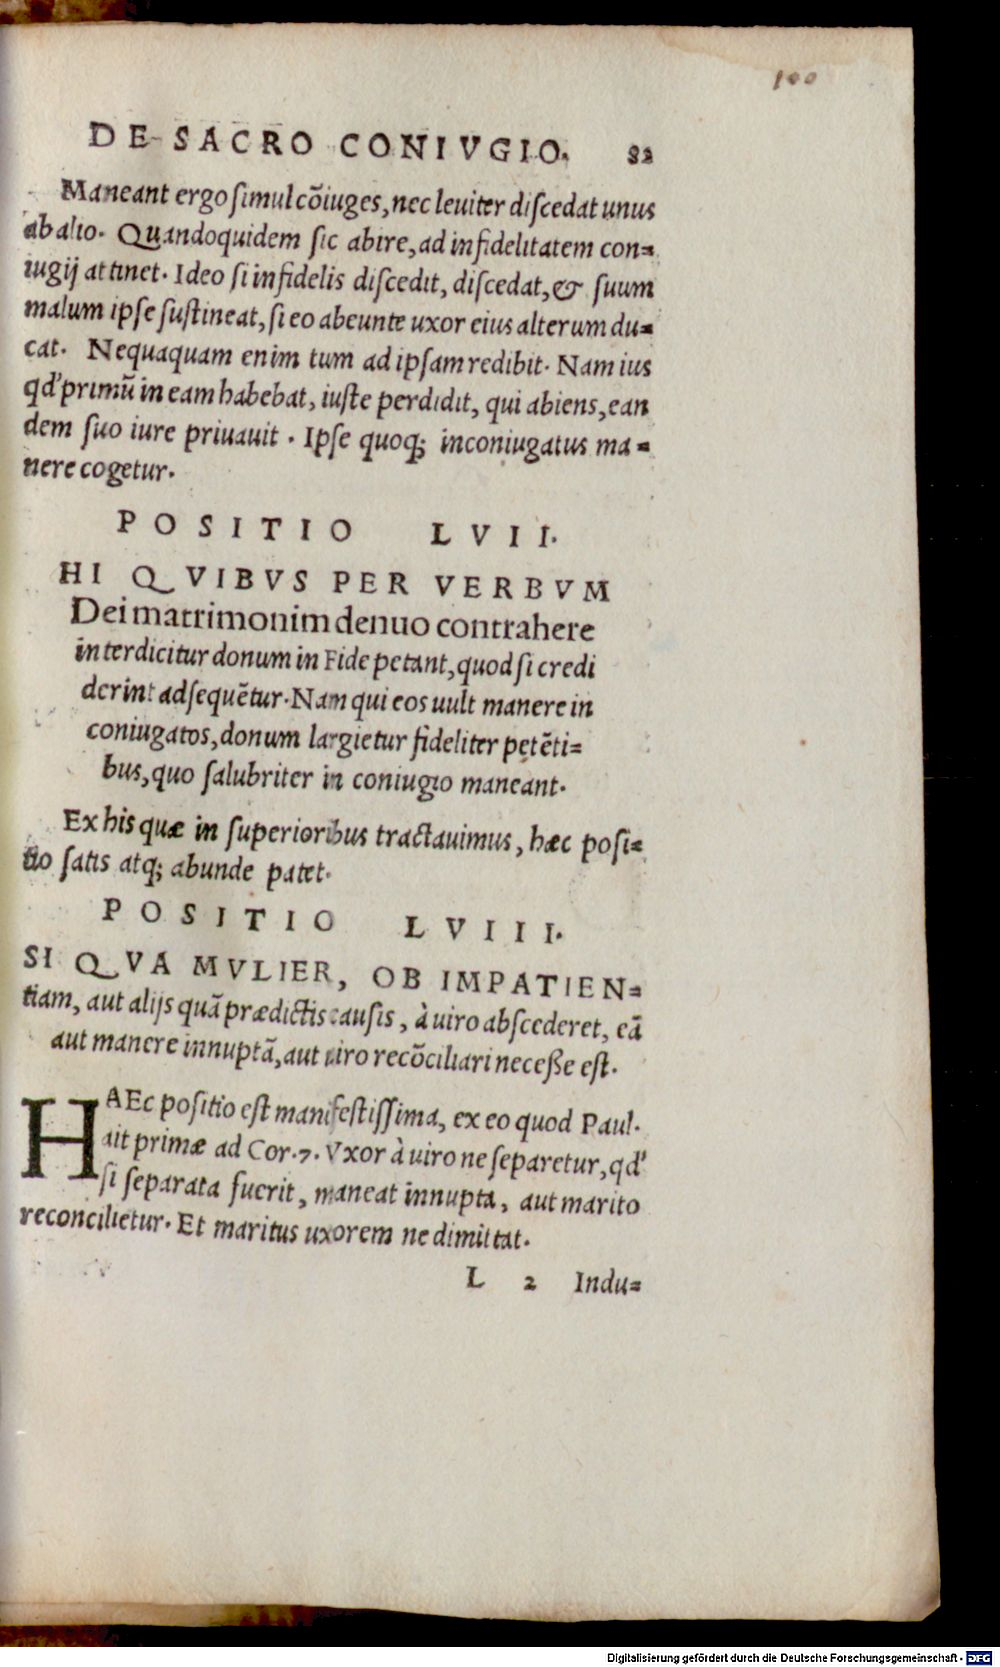 100
DE SACRO CONIVGIO. 82
Maneant ergo simul cõiuges, nec leuiter discedat unus
ab alio. Quandoquidem sic abire, ad infidelitatem con=
iugij attinet. Ideo si infidelis discedit, discedat, & suum
malum ipse sustineat, si eo abeunte uxor eius alterum du=
cat. Nequaquam enim tum ad ipsam redibit. Nam ius
qd' primũ in eam habebat, iuste perdidit, qui abiens, ean
dem suo iure priuauit. Ipse quoq; inconiugatus ma=
nere cogetur.
POSITIO LVII.
HI QVIBVS PER VERBVM
Dei matrimonim denuo contrahere
interdicitur donum in Fide petant, quod si credi
derint adsequẽtur. Nam qui eos uult manere in
coniugatos, donum largietur fideliter petẽti=
bus, quo salubriter in coniugio maneant.
Ex his quæ in superioribus tractauimus, hæc posi=
tio satis atq; abunde patet.
POSITIO LVIII.
SI QVA MVLIER, OB IMPATIEN=
tiam, aut alijs quã prædictis causis, à uiro abscederet, eã
aut manere innuptã, aut uiro recõciliari necesse est.
HAEc positio est manifestissima, ex eo quod Paul.
ait primæ ad Cor. 7. Vxor à uiro ne separetur, qd'
si separata fuerit, maneat innupta, aut marito
reconcilietur. Et maritus uxorem ne dimittat.
L 2 Indu=
Digitalisierung gefördert durch die Deutsche Forschungsgemeinschaft - DFG